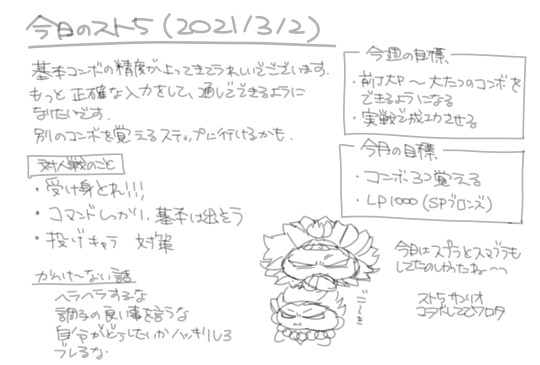 今日のスト5(2021/3/2)
基本コンボの精度が上ってきてうれしいでございます.
もっと正確な入力をして、通しでできるように
なりたいです.
別のコンボを覚えるステップに行けるかも.
対人戦のこと
・受け身とれ!!!
・コマンドしっかり、基本は出そう
・投げキャラ 対策
かんけ〜ない話
ヘラヘラするな
調子の良い事を言うな
自分がどうしたいかハッキリしろ
ブレるな
今週の目標
・前J大P〜大たつのコンボを
できるようになる
・実戦で成功させる
今月の目標
・コンボ3つ覚える
・LP1000(SPブロンズ)
今日はスプラとスマブラも
してたのしかたね〜〜
スト5 サンリオ
コラボしてひ